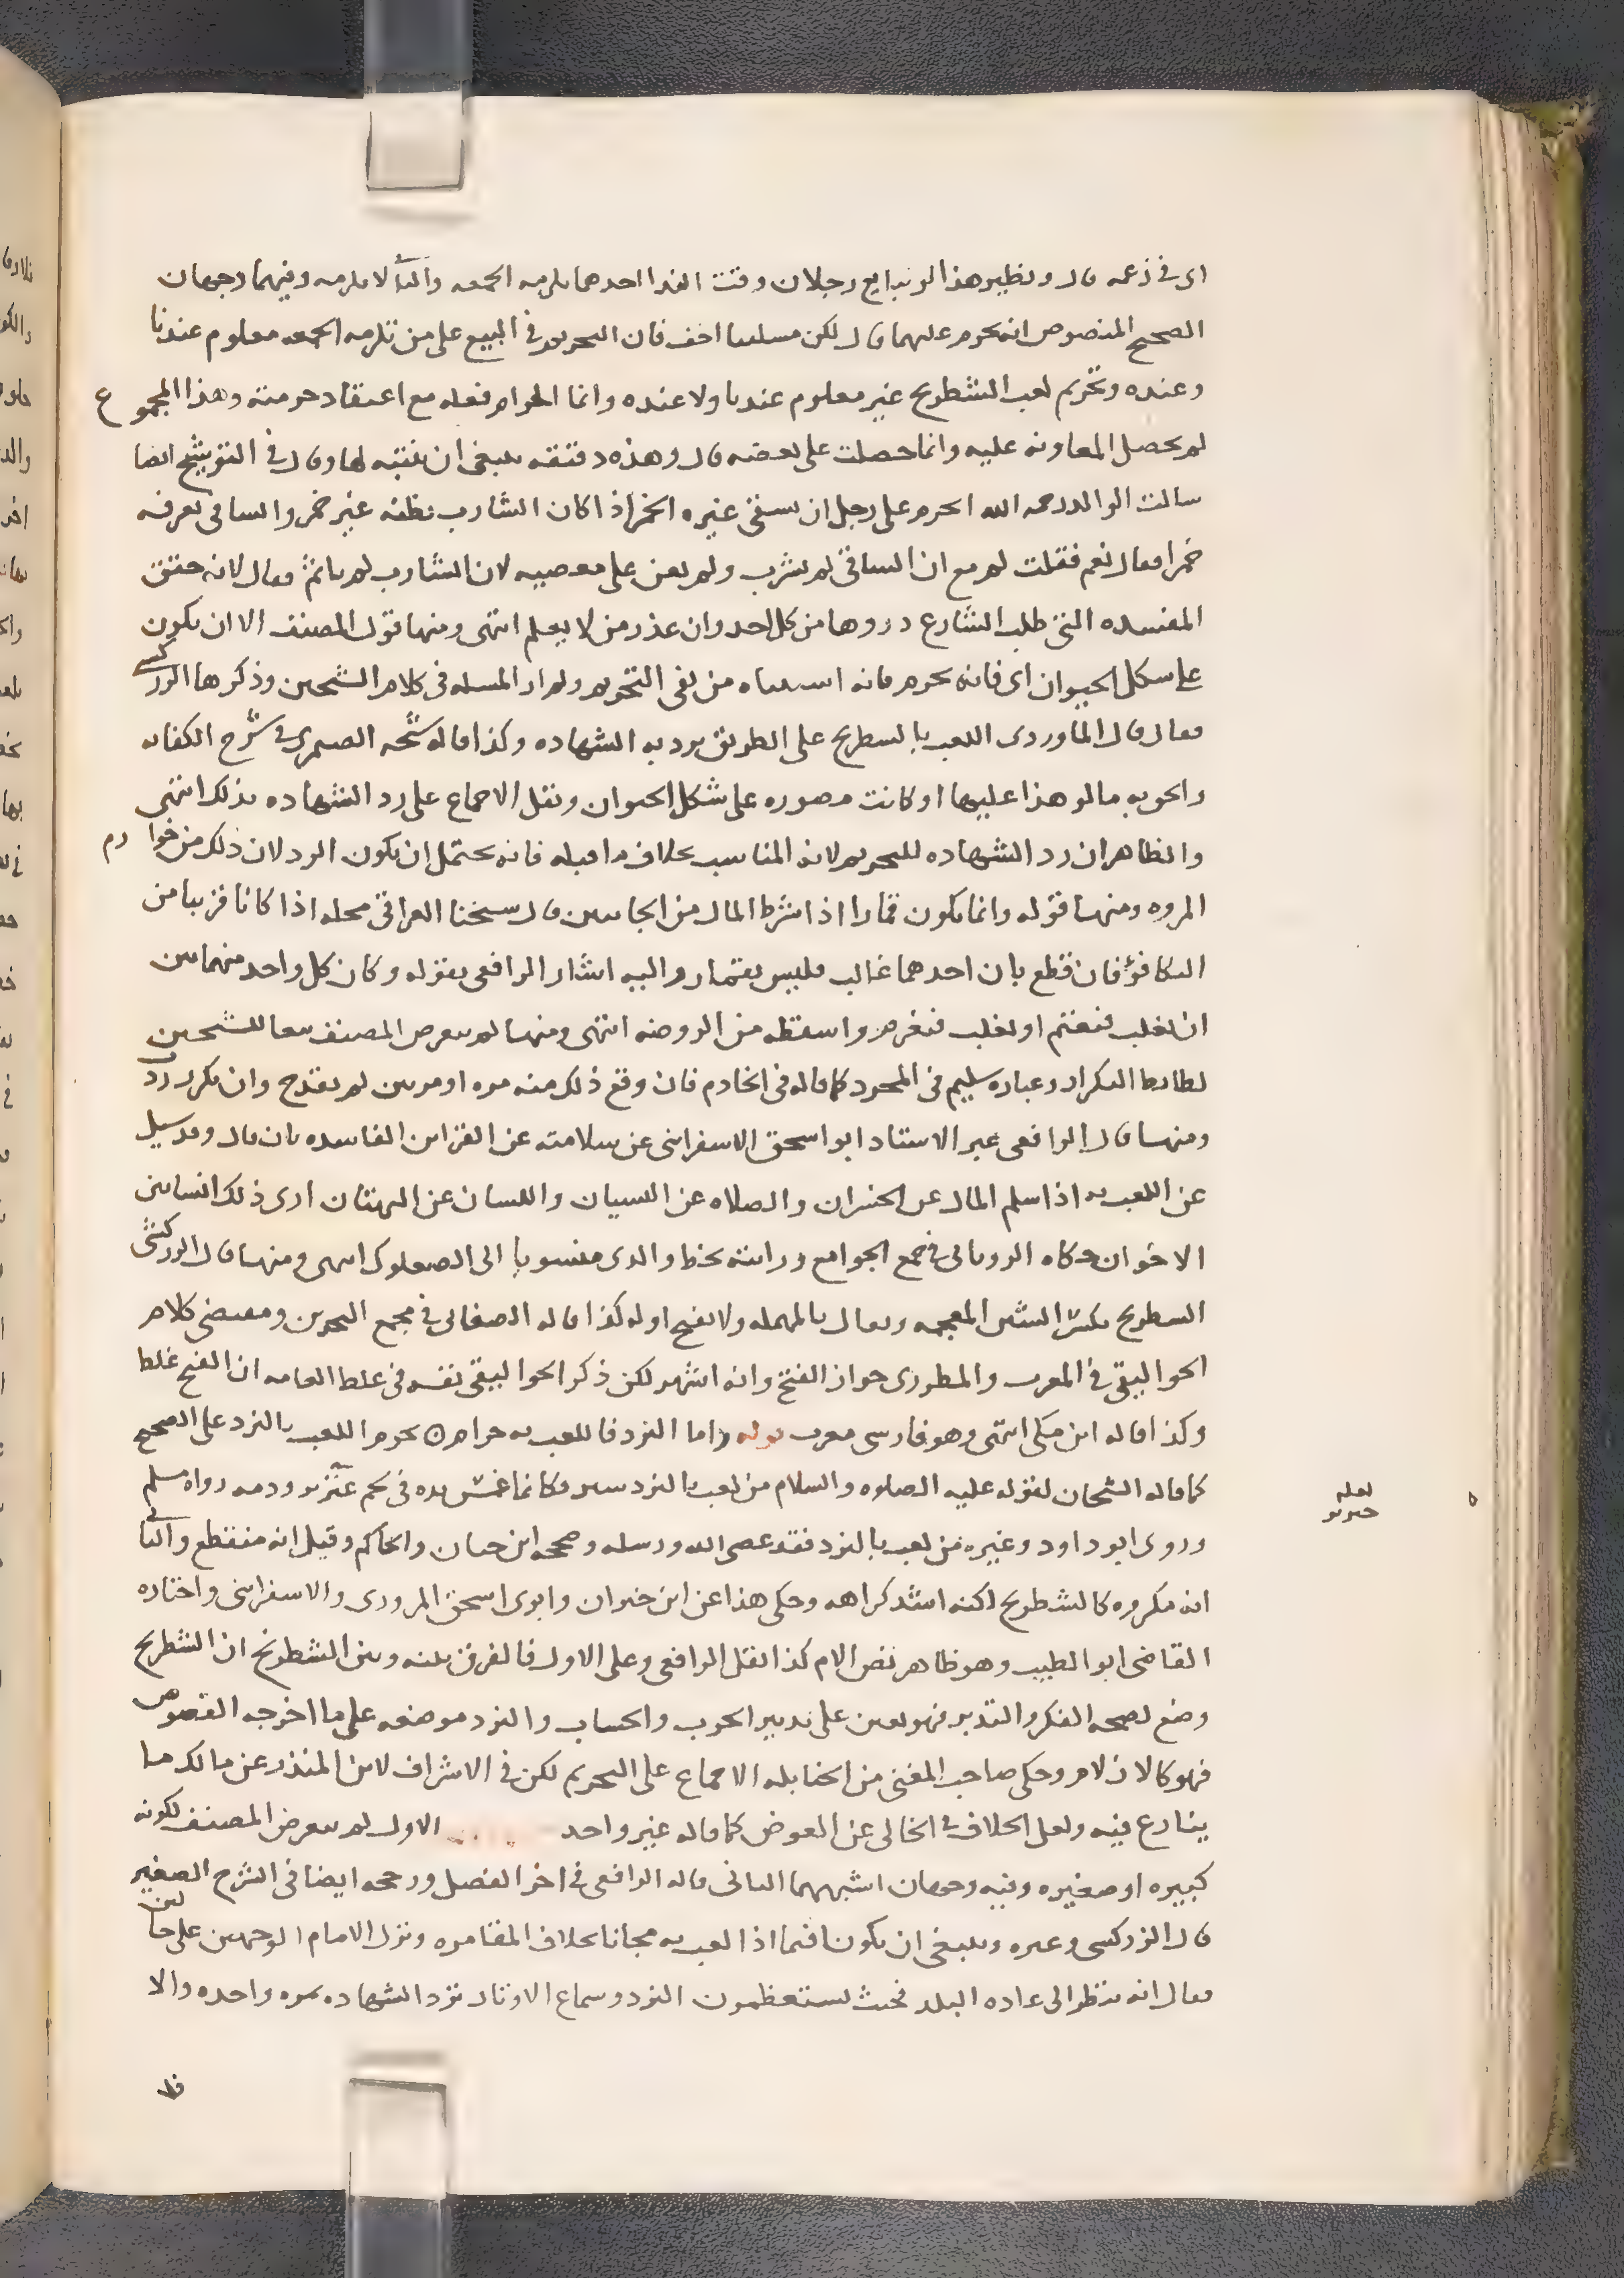 اى فى زعمه قال ونظير هذا لو تبايع رجلان وقت الندا احدهما يلزمه الجمعه والثانى لا يلزمه وفيهما وجهان
الصحيح المنصوص انه يحرم عليهما قال لكن مسلتنا اخف فان التحريم فى البيع على من تلزمه الجمعه معلوم عندنا
وعنده وتحريم لعب الشطرنج غير معلوم عندنا ولا عنده وانما الحرام فعله مع اعتقاد حرمته وهذا المجموع
لم يحصل المعاونه عليه وانما حصلت على بعضه قال وهذه دقيقه ينبغى ان يتنبه لها وقال فى التوشيح ايضا
سالت الوالد رحمه الله ايحرم على رجل ان يسقى غيره الخمر اذا كان الشارب يظنه غير خمر والساقى يعرفه
خمرا فقال نعم فقلت لم مع ان الساقى لم يشرب ولم يعن على معصيه لان الشارب لم ياثم فقال لانه حقق
المفسده التى طلب الشارع دروها من كل احد وان عذر من لا يعلم انتهى ومنها قول المصنف الا ان يكون
على شكل الحيوان اى فانه يحرم فانه استثناه من نفى التحريم ولم ار المسله فى كلام الشيخين وذكرها الزركشى
فقال قال الماوردى اللعب بالشطرنج على الطريق يرد به الشهاده وكذا قاله شيخه الصيمرى فى شرح الكفايه
والحق به ما لو هذا عليها او كانت مصوره على شكل الحيوان ونقل الاجماع على رد الشهاده بذلك انتهى
والظاهر ان رد الشهاده للتحريم لانه المناسب بخلاف ما قبله فانه يحتمل ان يكون الرد لان ذلك من خوارم
المروه ومنها قوله وانما يكون قمارا اذا شرط المال من الجانبين قال شيخنا العراقى محله اذا كانا قريبا من
التكافؤ فان قطع بان احدهما غالب فليس بقمار واليه اشار الرافعى بقوله وكان كل واحد منهما بين
ان يغلب فيغنم او يغلب فيغرم واسقطه من الروضه انتهى ومنها لم يتعرض المصنف تبعا للشيخين
لضابط التكرار وعباره سليم فى المجرد كما قاله فى الخادم فان وقع ذلك منه مره او مرتين لم يقدح وان تكرر رد
ومنها قال الرافعى عبر الاستاد ابو اسحق الاسفراينى عن سلامته عن القراين الفاسده بان قال وقد سيل
عن اللعب به اذا سلم المال عن الخسران والصلاه عن النسيان واللسان عن البهتان ارى ذلك انسا بين
الاخوان حكاه الرويانى فى جمع الجوامع ورايته بخط والدى منسوبا الى الصعلوكى انتهى ومنها قال الزركشى
الشطرنج بكسر الشين المعجمه ويقال بالمهمله ولا يفتح اوله كذا قاله الصغانى فى مجمع البحرين ومقتضى كلام
الجواليقى فى المعرب والمطرزى جواز الفتح وانه اشهر لكن ذكر الجواليقى نفسه فى غلط العامه ان الفتح غلط
وكذا قاله ابن مكى انتهى وهو فارسى معرب قوله واما النرد فاللعب به حرام ○ يحرم اللعب بالنرد على الصحيح
كما قاله الشيخان لقوله عليه الصلاه والسلام من لعب بالنردشير فكانما غمس يده فى لحم عنزير ودمه رواه مسلم
لعله خنزير
وروى ابو داود وغيره من لعب بالنرد فقد عصى الله ورسله وصححه ابن حبان والحاكم وقيل انه منقطع والثانى
انه مكروه كالشطرنج لكنه اشد كراهه وحكى هذا عن ابن خيران وابوى اسحق المروزى والاسفراينى واختاره
القاضى ابو الطيب وهو ظاهر نص الام كذا نقل الرافعى وعلى الاول فالفرق بينه وبين الشطرنج ان الشطرنج
وضع لصحه الفكر والتدبر فهو يعين على تدبير الحرب والحساب والنرد موضعه على ما اخرجه الفصوص
فهو كالازلام وحكى صاحب المغنى من الحنابله الاجماع على التحريم لكن فى الاشراف لابن المنذر عن مالك ما
ينازع فيه ولعل الخلاف فى الخالى عن العوض كما قاله غير واحد الاول لم يتعرض المصنف لكونه
كبيره او صغيره وفيه وجهان اشبههما الثانى قاله الرافعى فى اخر الفصل ورجحه ايضا فى الشرح الصغير
قال الزركشى وغيره وينبغى ان يكونا فيما اذا لعب به مجانا بخلاف المقامره ونزل الامام الوجهين على حالين
فقال انه ينظر الى عاده البلد فحيث يستعظمون النرد وسماع الاوتار ترد الشهاده بمره واحده والا
فلا